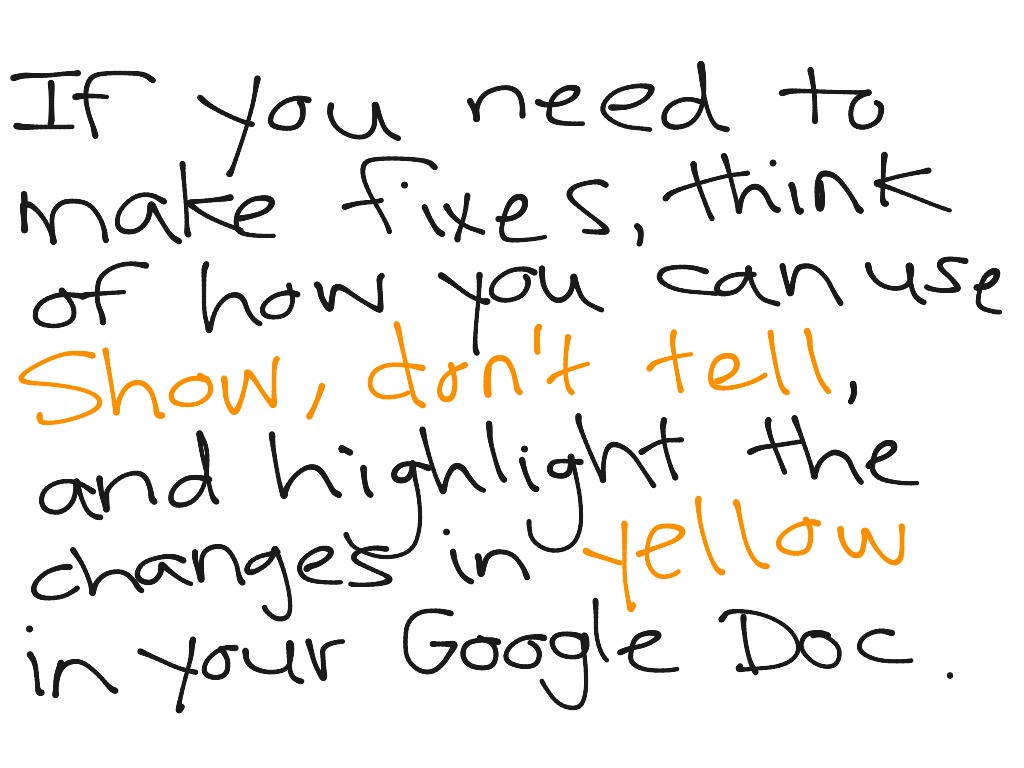 If you need to
make fixes, think
of how you can use
Show, don't tell,
and highlight the
changes in yellow
in your Google Doc.